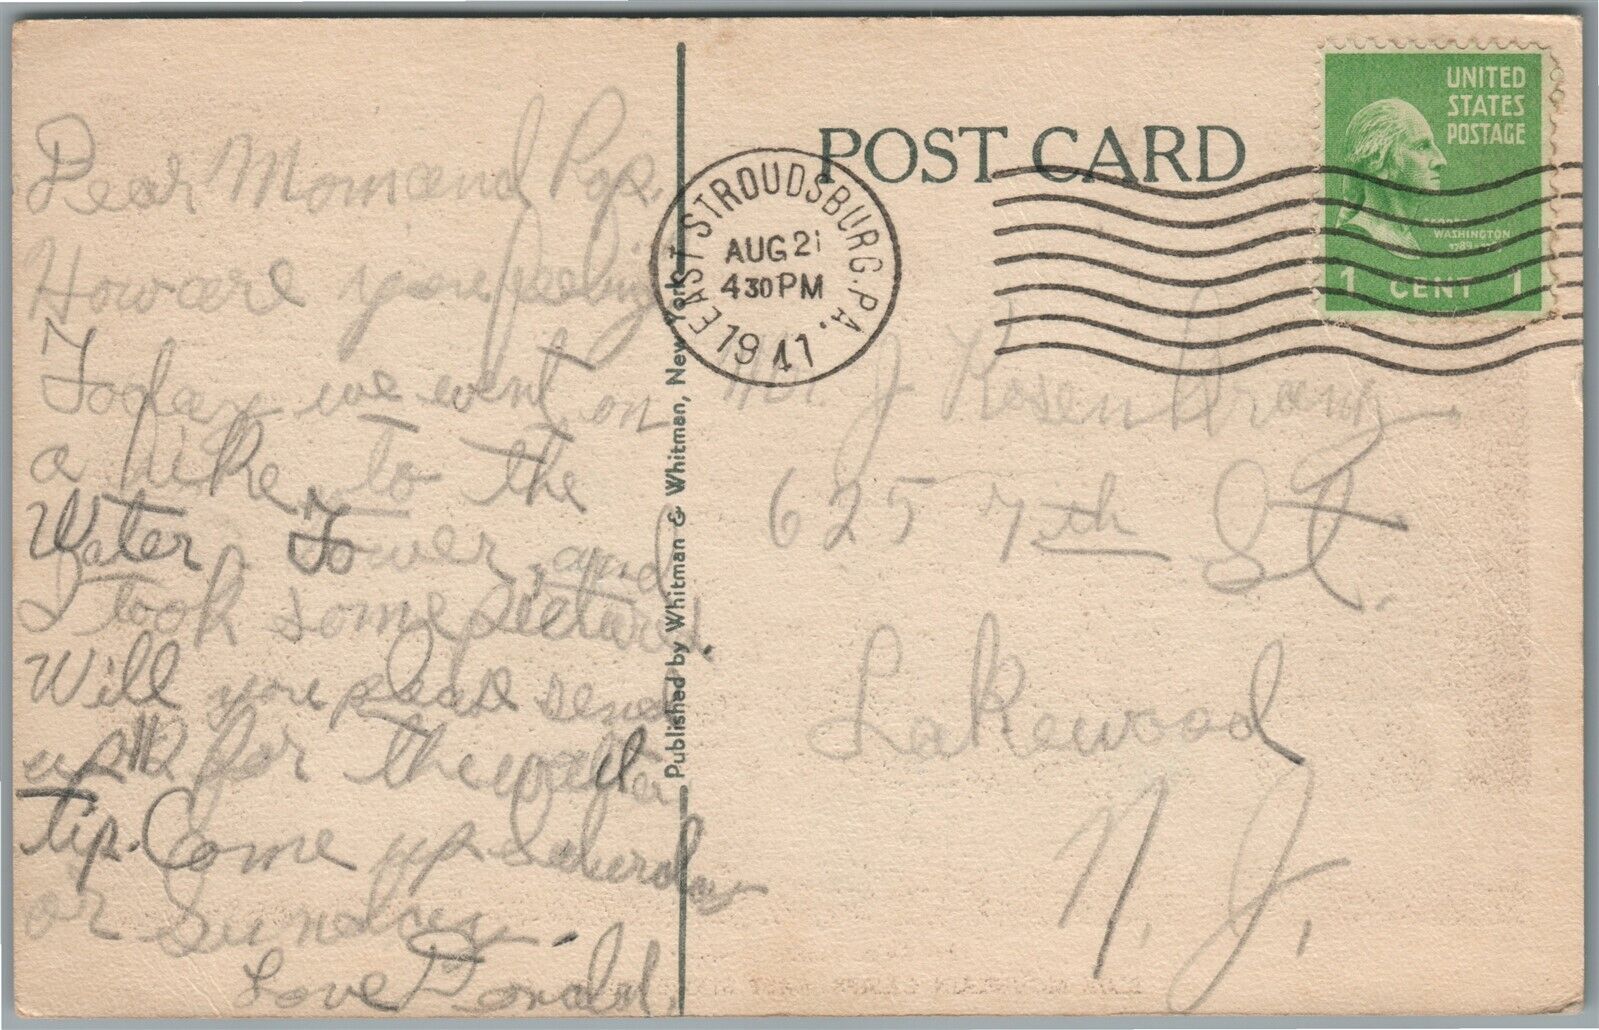 Dear Mom and Pop,
How are you feeling
Today we went on
a hike to the
Water Tower, and
I took some pictures.
Will you please send
up for the waiter
tip. Come up Saturday
or Sunday.
Love Donald.
Published by Whitman & Whitman, New York
POST CARD
EAST STROUDSBURG. PA.
AUG 21
4 30 PM
1941
UNITED
STATES
POSTAGE
WASHINGTON
1 CENT 1
Mr. J Rosenkranz
625 7th St.
Lakewood
N. J.